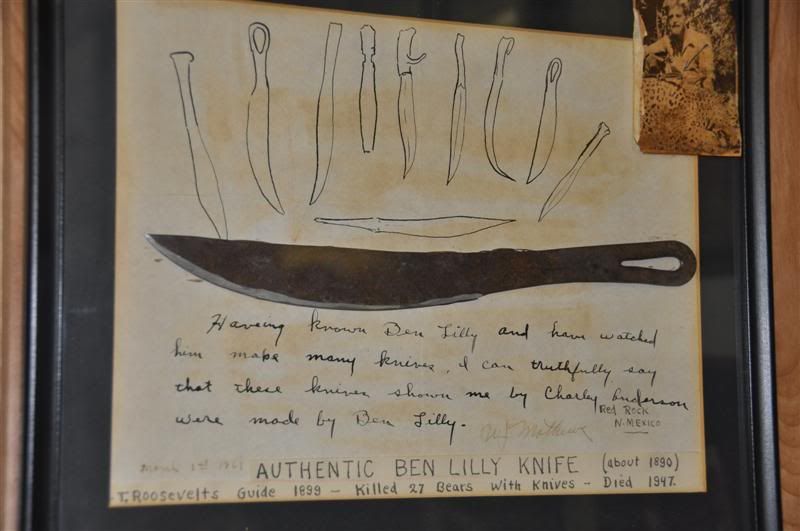 Haveing known Ben Lilly and have watched
him make many knives, I can truthfully say
that these knives shown me by Charley Anderson
Red Rock
N. MEXICO
were made by Ben Lilly.
March 1st 1961
AUTHENTIC BEN LILLY KNIFE (about 1890)
T. Roosevelts Guide 1899 - Killed 27 Bears With Knives - Died 1947.